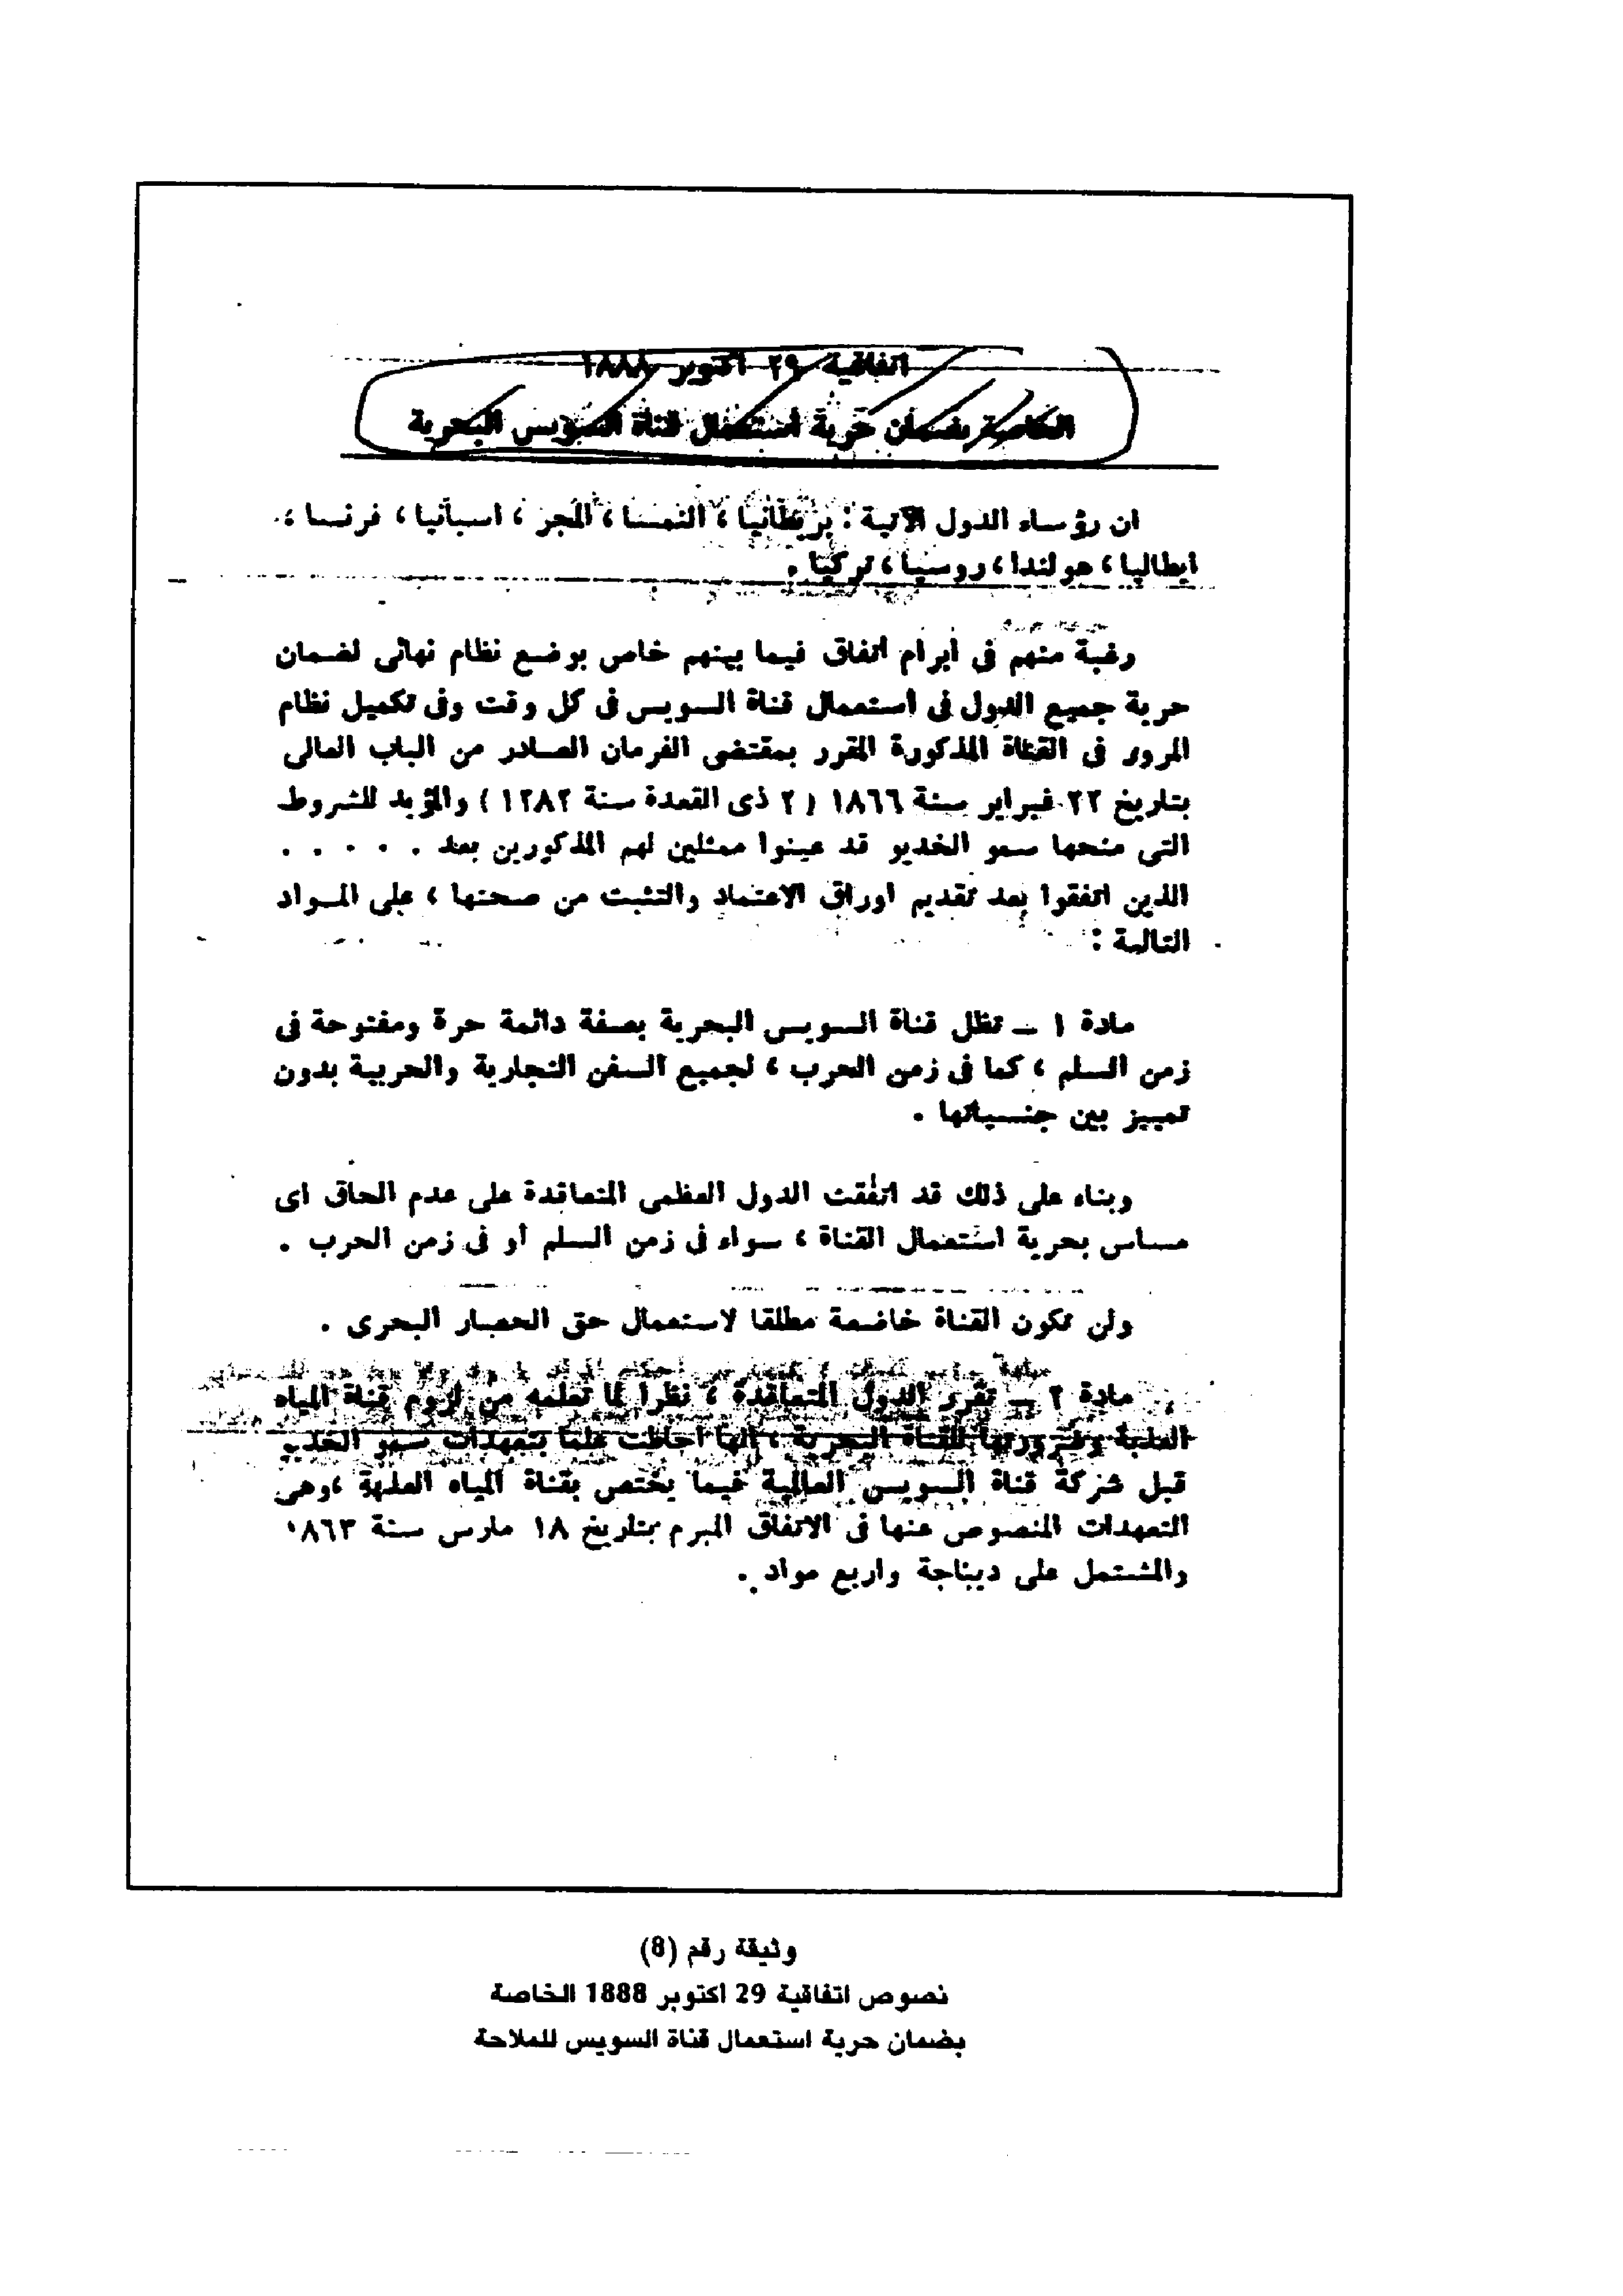 اتفاقية ٢٩ اكتوبر ١٨٨٨
الخاصة بضمان حرية استعمال قناة السويس البحرية
ان رؤساء الدول الآتية : بريطانيا ، النمسا ، المجر ، اسبانيا ، فرنسا ،
ايطاليا ، هولندا ، روسيا ، تركيا .
رغبة منهم فى ابرام اتفاق فيما بينهم خاص بوضع نظام نهائى لضمان
حرية جميع الدول فى استعمال قناة السويس فى كل وقت وفى تكميل نظام
المرور فى القناة المذكورة المقرر بمقتضى الفرمان الصادر من الباب العالى
بتاريخ ٢٢ فبراير سنة ١٨٦٦ ( ٢ ذى القعدة سنة ١٢٨٢ ) والمؤيد للشروط
التى منحها سمو الخديو قد عينوا ممثلين لهم المذكورين بعد . . . . .
الذين اتفقوا بعد تقديم اوراق الاعتماد والتثبت من صحتها ، على المواد
التالية :
مادة ١ ــ تظل قناة السويس البحرية بصفة دائمة حرة ومفتوحة فى
زمن السلم ، كما فى زمن الحرب ، لجميع السفن التجارية والحربية بدون
تمييز بين جنسياتها .
وبناء على ذلك قد اتفقت الدول العظمى المتعاقدة على عدم الحاق اى
مساس بحرية استعمال القناة ، سواء فى زمن السلم أو فى زمن الحرب .
ولن تكون القناة خاضعة مطلقا لاستعمال حق الحصار البحرى .
مادة ٢ ــ تقرر الدول المتعاقدة ، نظرا لما تعلمه من لزوم قناة المياه
العذبة وضرورتها للقناة البحرية ، انها احاطت علما بتعهدات سمو الخديو
قبل شركة قناة السويس العالمية فيما يختص بقناة المياه العذبة ،وهى
التعهدات المنصوص عنها فى الاتفاق المبرم بتاريخ ١٨ مارس سنة ١٨٦٣
والمشتمل على ديباجة واربع مواد .
وثيقة رقم (8)
نصوص اتفاقية 29 اكتوبر 1888 الخاصة
بضمان حرية استعمال قناة السويس للملاحة